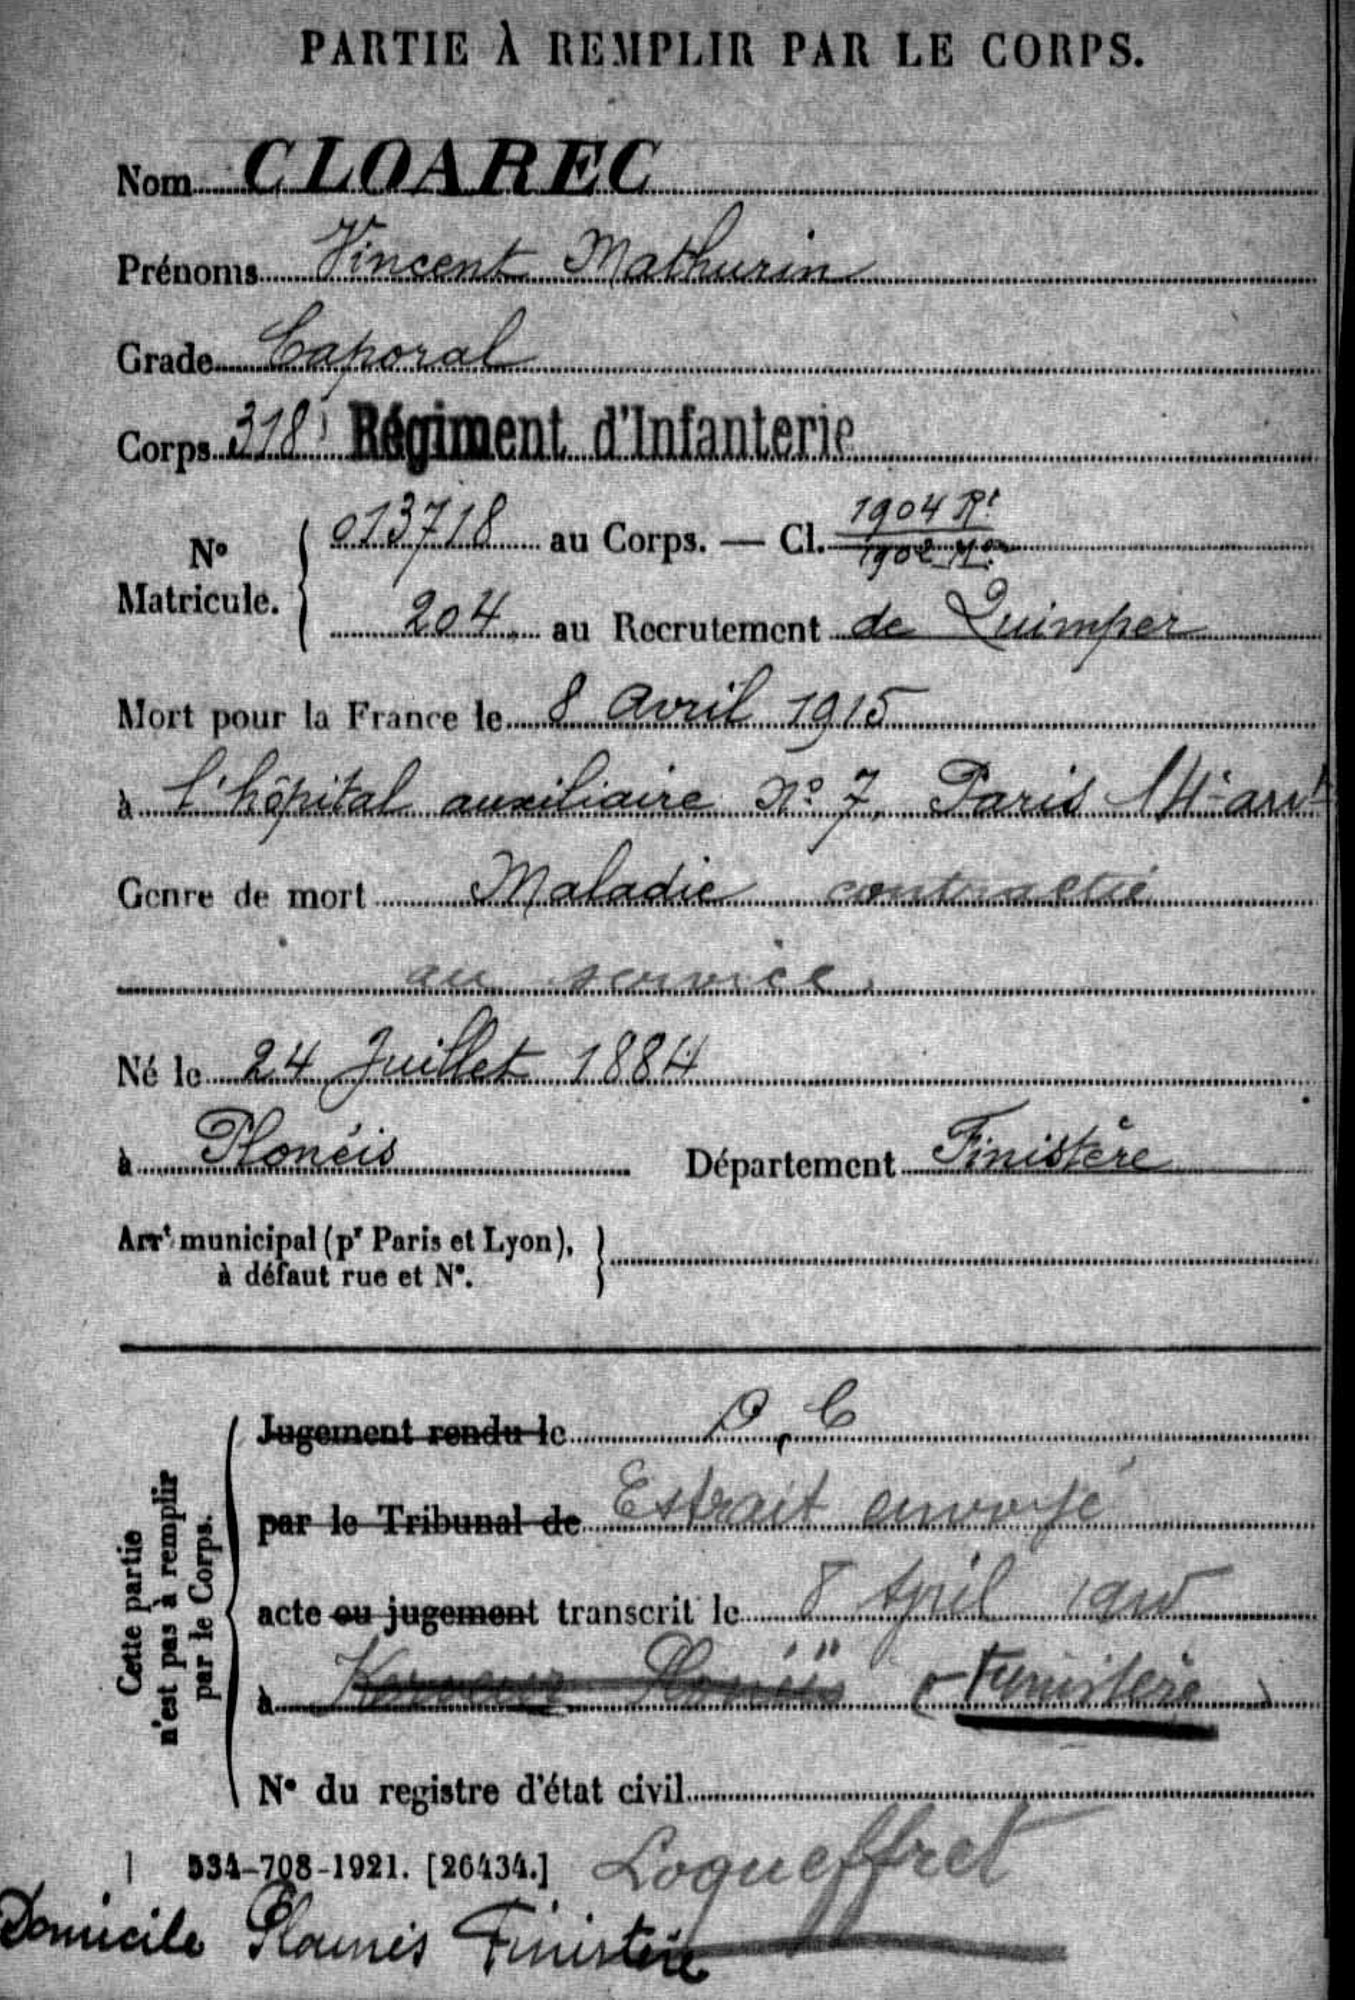 PARTIE À REMPLIR PAR LE CORPS.
Nom CLOAREC
Prénoms Vincent Mathurin
Grade Caporal
Corps 318e Régiment d'Infanterie
No Matricule. { 013718 au Corps. — Cl. 1904 Rt
1902 Mon
204 au Recrutement de Quimper
Mort pour la France le 8 Avril 1915
à l'hôpital auxiliaire No 7, Paris 14e arrt
Genre de mort Maladie contractée
au service.
Né le 24 Juillet 1884
à Plonéis Département Finistère
Arrt municipal (pr Paris et Lyon), à défaut rue et No. }
Cette partie n'est pas à remplir par le Corps.
Jugement rendu le D, C
par le Tribunal de Extrait envoyé
acte ou jugement transcrit le 8 April 1915
à Plonéis (Finistère)
No du registre d'état civil
534-708-1921. [26434.] Loqueffret
Domicile Finistère